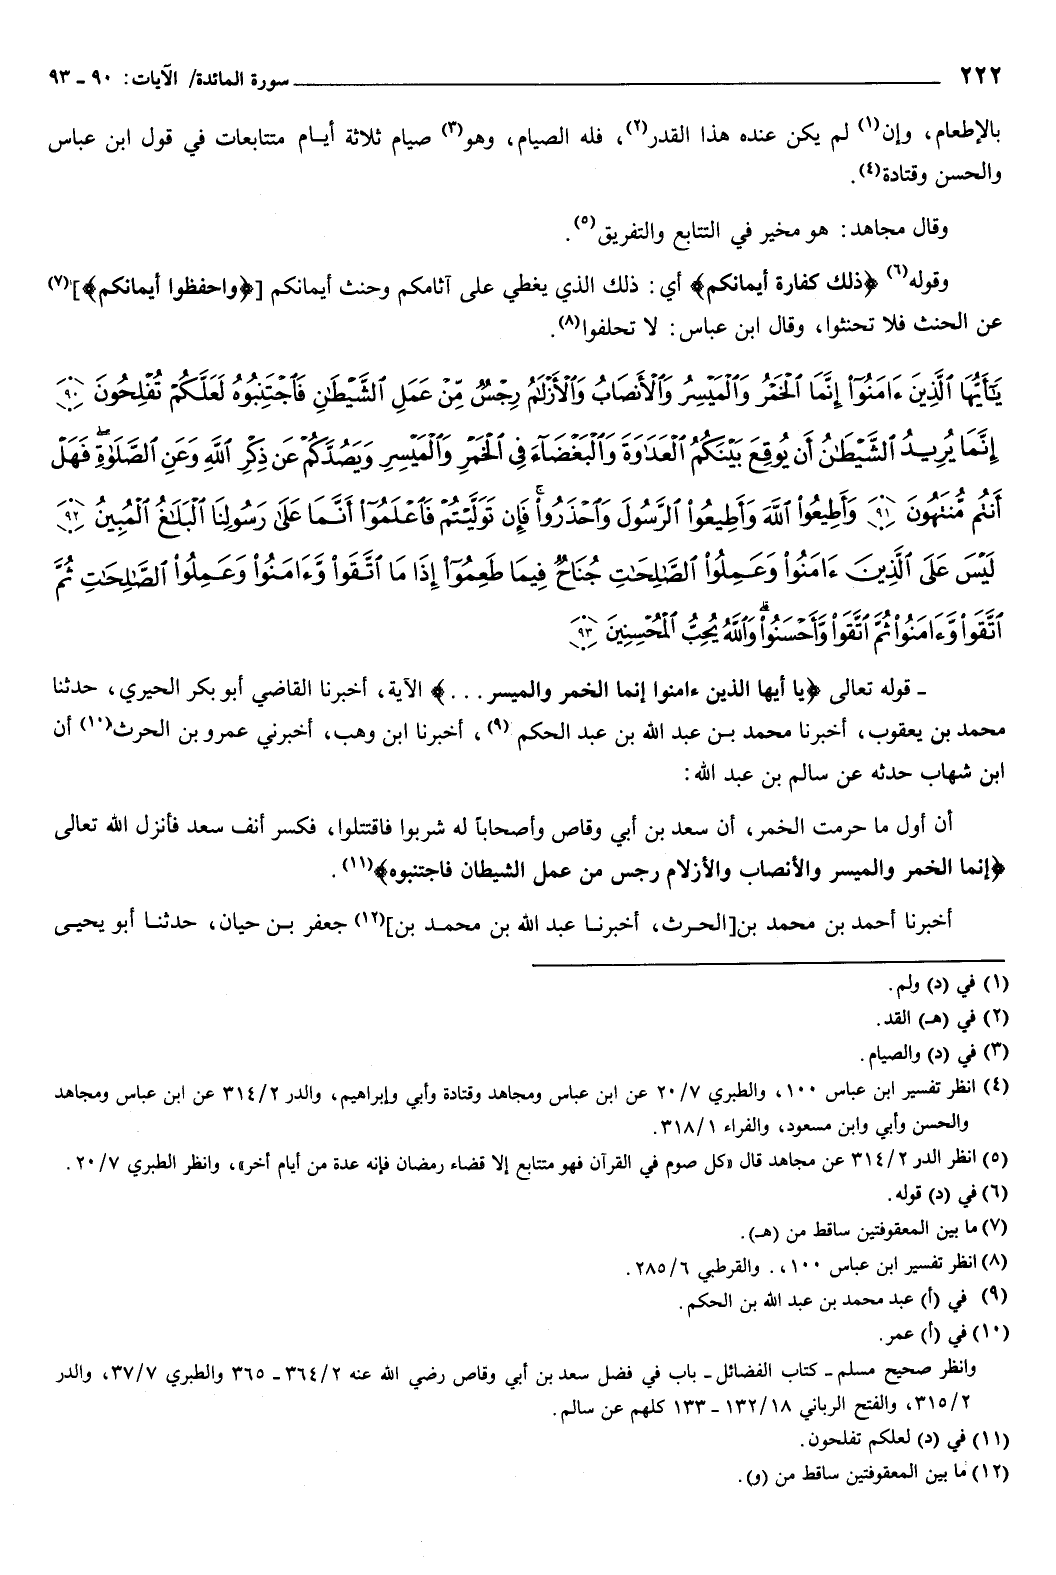 ٢٢٢ سورة المائدة/ الآيات: ٩٠ ـ ٩٣
بالإطعام، وإن(١) لم يكن عنده هذا القدر(٢)، فله الصيام، وهو(٣) صيام ثلاثة أيام متتابعات في قول ابن عباس
والحسن وقتادة(٤).
وقال مجاهد: هو مخير في التتابع والتفريق(٥).
وقوله(٦) ﴿ذلك كفارة أيمانكم﴾ أي: ذلك الذي يغطي على آثامكم وحنث أيمانكم [﴿واحفظوا أيمانكم﴾](٧)
عن الحنث فلا تحنثوا، وقال ابن عباس: لا تحلفوا(٨).
يَٰٓأَيُّهَا ٱلَّذِينَ ءَامَنُوٓا۟ إِنَّمَا ٱلْخَمْرُ وَٱلْمَيْسِرُ وَٱلْأَنصَابُ وَٱلْأَزْلَٰمُ رِجْسٌ مِّنْ عَمَلِ ٱلشَّيْطَٰنِ فَٱجْتَنِبُوهُ لَعَلَّكُمْ تُفْلِحُونَ ٩٠
إِنَّمَا يُرِيدُ ٱلشَّيْطَٰنُ أَن يُوقِعَ بَيْنَكُمُ ٱلْعَدَٰوَةَ وَٱلْبَغْضَآءَ فِى ٱلْخَمْرِ وَٱلْمَيْسِرِ وَيَصُدَّكُمْ عَن ذِكْرِ ٱللَّهِ وَعَنِ ٱلصَّلَوٰةِ ۖ فَهَلْ
أَنتُم مُّنتَهُونَ ٩١ وَأَطِيعُوا۟ ٱللَّهَ وَأَطِيعُوا۟ ٱلرَّسُولَ وَٱحْذَرُوا۟ ۚ فَإِن تَوَلَّيْتُمْ فَٱعْلَمُوٓا۟ أَنَّمَا عَلَىٰ رَسُولِنَا ٱلْبَلَٰغُ ٱلْمُبِينُ ٩٢
لَيْسَ عَلَى ٱلَّذِينَ ءَامَنُوا۟ وَعَمِلُوا۟ ٱلصَّٰلِحَٰتِ جُنَاحٌ فِيمَا طَعِمُوٓا۟ إِذَا مَا ٱتَّقَوا۟ وَّءَامَنُوا۟ وَعَمِلُوا۟ ٱلصَّٰلِحَٰتِ ثُمَّ
ٱتَّقَوا۟ وَّءَامَنُوا۟ ثُمَّ ٱتَّقَوا۟ وَّأَحْسَنُوا۟ ۗ وَٱللَّهُ يُحِبُّ ٱلْمُحْسِنِينَ ٩٣
ـ قوله تعالى ﴿يا أيها الذين ءامنوا إنما الخمر والميسر . . .﴾ الآية، أخبرنا القاضي أبو بكر الحيري، حدثنا
محمد بن يعقوب، أخبرنا محمد بن عبد الله بن عبد الحكم (٩)، أخبرنا ابن وهب، أخبرني عمرو بن الحرث(١٠) أن
ابن شهاب حدثه عن سالم بن عبد الله:
أن أول ما حرمت الخمر، أن سعد بن أبي وقاص وأصحاباً له شربوا فاقتتلوا، فكسر أنف سعد فأنزل الله تعالى
﴿إنما الخمر والميسر والأنصاب والأزلام رجس من عمل الشيطان فاجتنبوه﴾(١١).
أخبرنا أحمد بن محمد بن[الحرث، أخبرنا عبد الله بن محمد بن](١٢) جعفر بن حيان، حدثنا أبو يحيى
(١) في (د) ولم.
(٢) في (هـ) القد.
(٣) في (د) والصيام.
(٤) انظر تفسير ابن عباس ١٠٠، والطبري ٢٠/٧ عن ابن عباس ومجاهد وقتادة وأبي وإبراهيم، والدر ٣١٤/٢ عن ابن عباس ومجاهد
والحسن وأبي وابن مسعود، والفراء ٣١٨/١.
(٥) انظر الدر ٣١٤/٢ عن مجاهد قال «كل صوم في القرآن فهو متتابع إلا قضاء رمضان فإنه عدة من أيام أخر»، وانظر الطبري ٢٠/٧.
(٦) في (د) قوله.
(٧) ما بين المعقوفتين ساقط من (هـ).
(٨) انظر تفسير ابن عباس ١٠٠،. والقرطبي ٢٨٥/٦.
(٩) في (أ) عبد محمد بن عبد الله بن الحكم.
(١٠) في (أ) عمر.
وانظر صحيح مسلم ـ كتاب الفضائل ـ باب في فضل سعد بن أبي وقاص رضي الله عنه ٣٦٤/٢ ـ ٣٦٥ والطبري ٣٧/٧، والدر
٣١٥/٢، والفتح الرباني ١٣٢/١٨ ـ ١٣٣ كلهم عن سالم.
(١١) في (د) لعلكم تفلحون.
(١٢) ما بين المعقوفتين ساقط من (و).